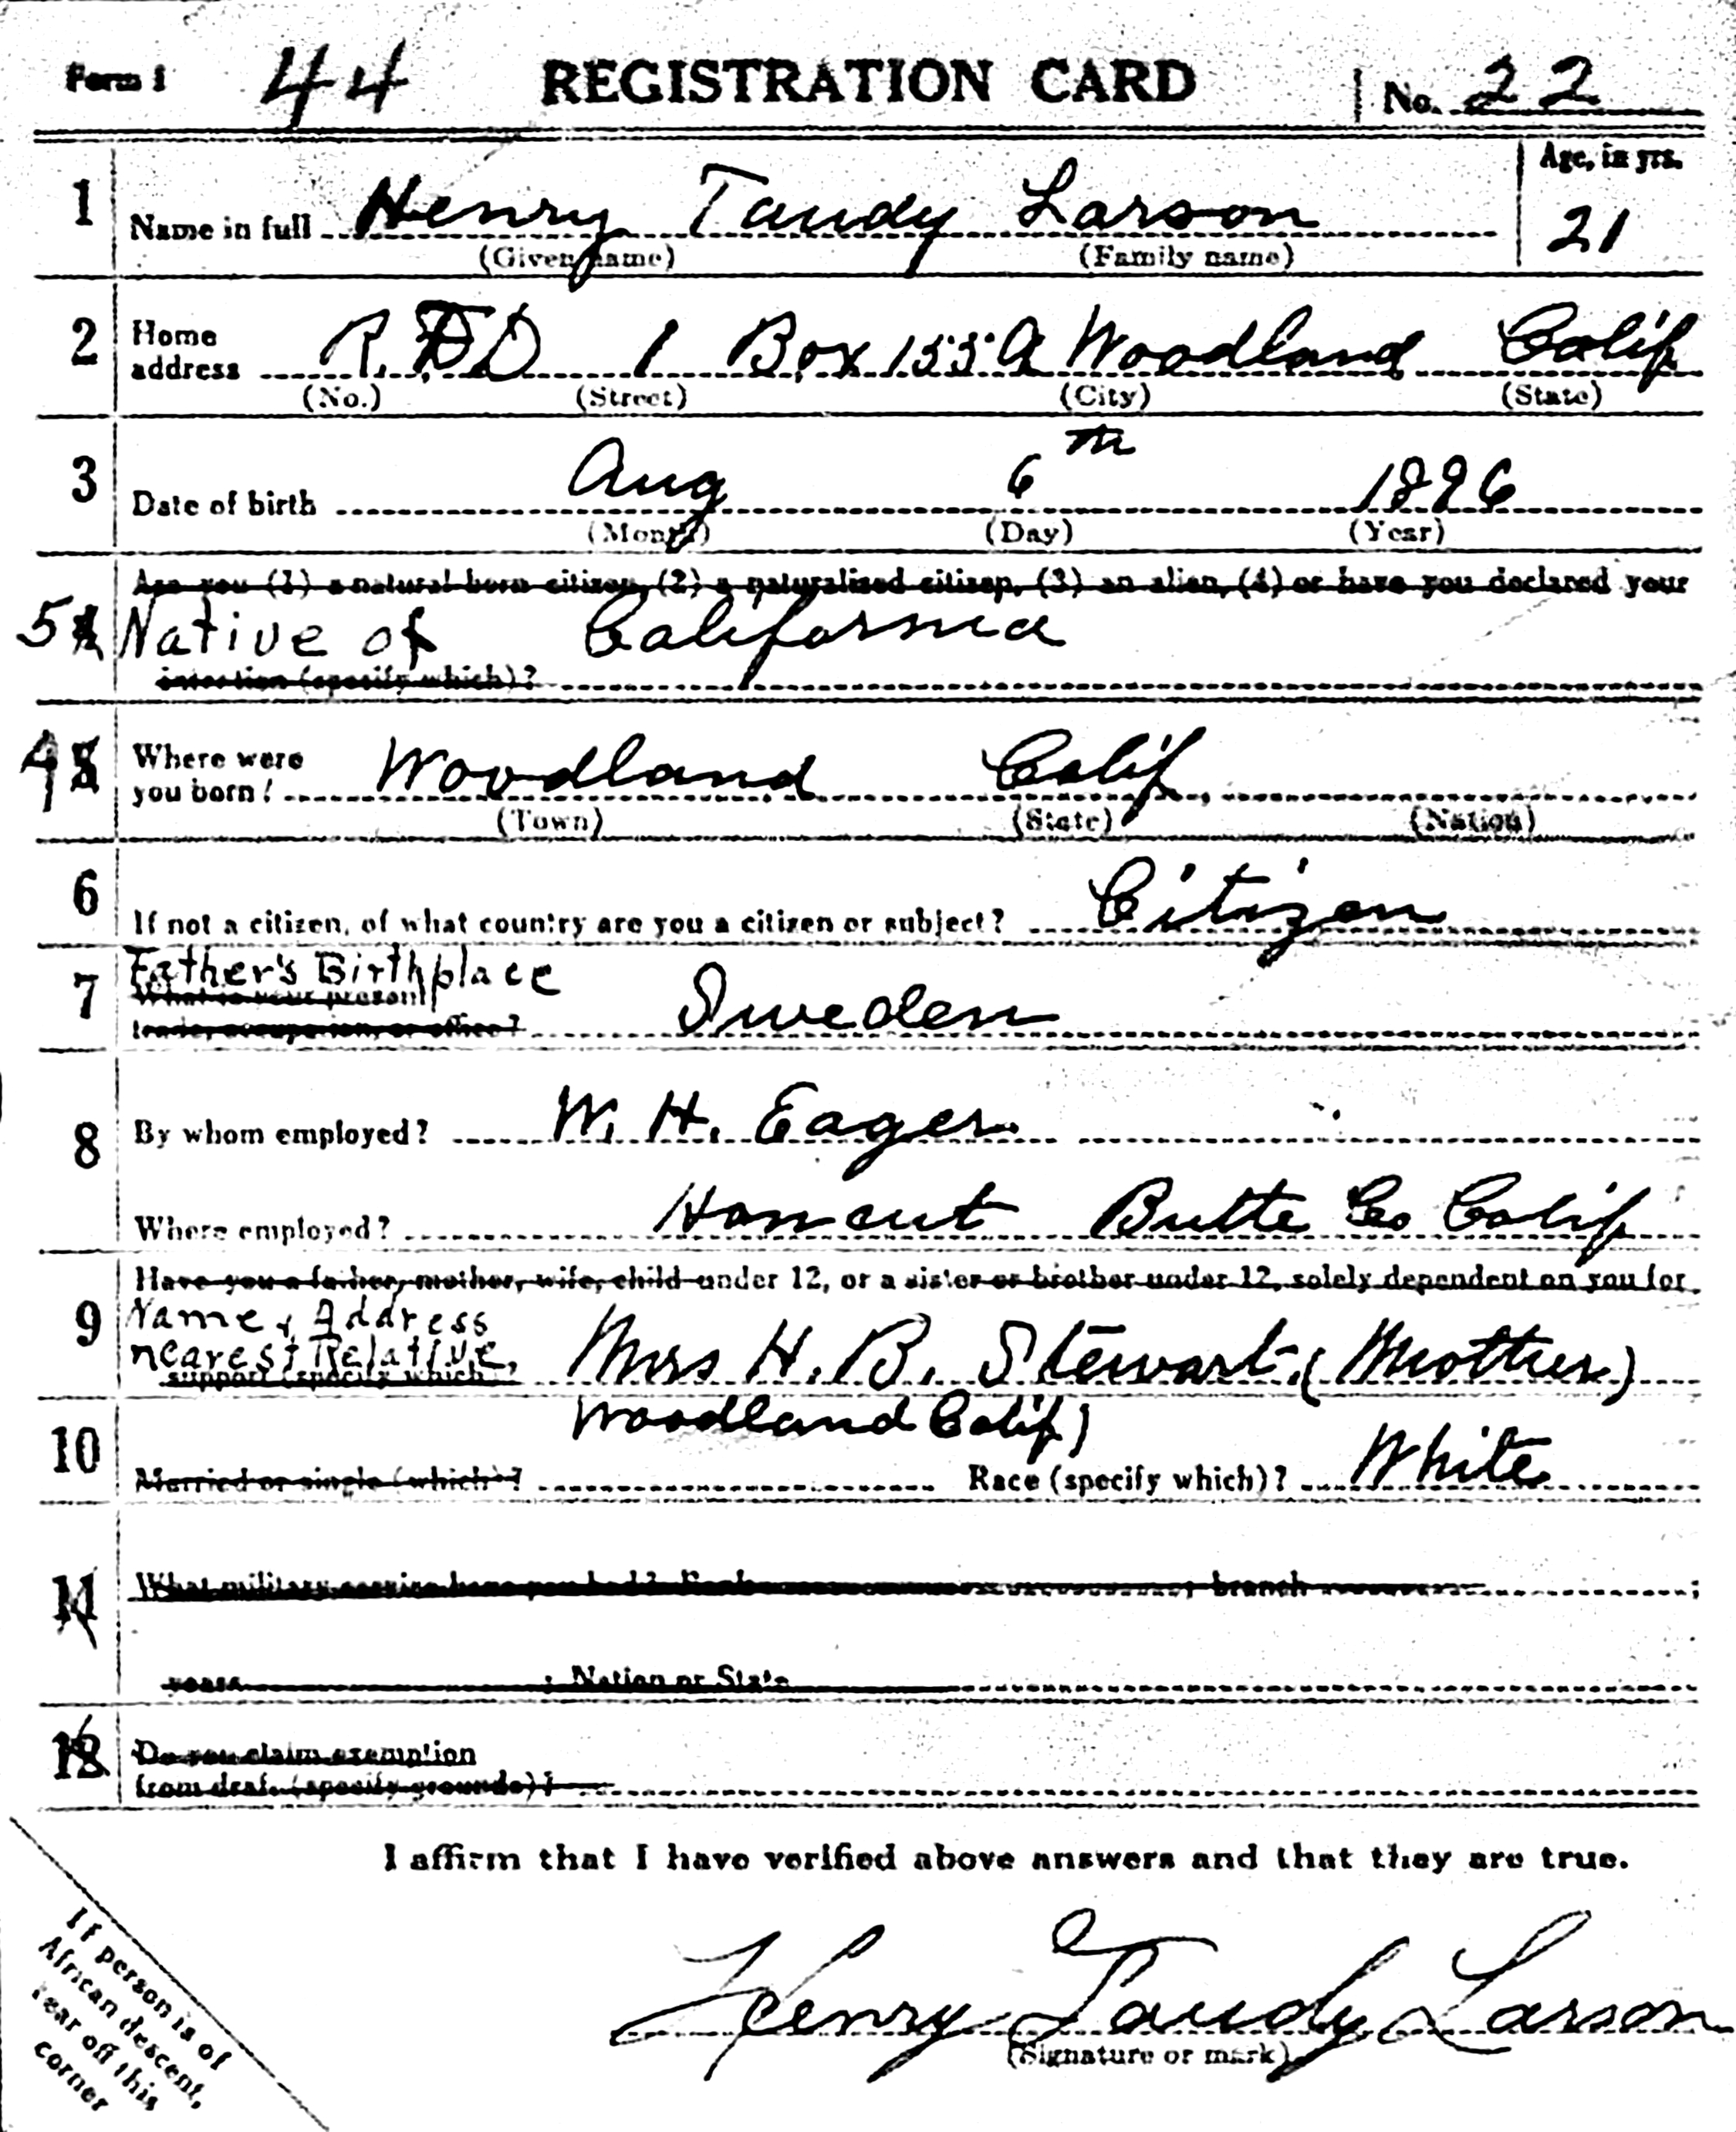 Form 1 44 REGISTRATION CARD No. 22
Age, in yrs.
1 Name in full Henry Tandy Larson 21
(Given name) (Family name)
2 Home address R.F.D 1 Box 155A Woodland Calif
(No.) (Street) (City) (State)
3 Date of birth Aug 6th 1896
(Month) (Day) (Year)
Are you (1) a natural born citizen, (2) a naturalized citizen, (3) an alien, (4) or have you declared your
5 Native of California
intention (specify which)?
4 Where were you born? Woodland Calif
(Town) (State) (Nation)
6 If not a citizen, of what country are you a citizen or subject? Citizen
Father's Birthplace
7 What is your present Sweden
trade, occupation, or office?
8 By whom employed? W. H. Eager
Where employed? Honcut Butte Co Calif
Have you a father, mother, wife, child under 12, or a sister or brother under 12, solely dependent on you for
9 Name & Address
nearest Relative, Mrs H. B. Stewart (Mother)
support (specify which)?
Woodland Calif)
10 Married or single (which)? Race (specify which)? White
11 What military service have you had? Rank ; branch ;
years ; Nation or State
12 Do you claim exemption
from draft (specify grounds)?
I affirm that I have verified above answers and that they are true.
Henry Tandy Larson
(Signature or mark)
If person is of
African descent,
tear off this
corner